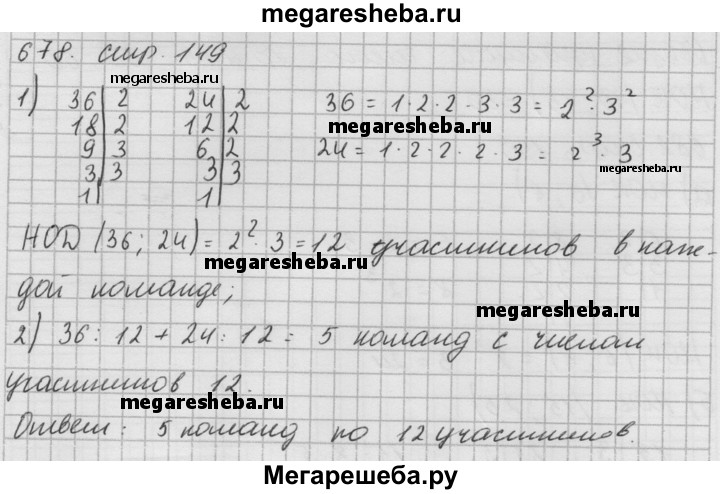 megaresheba.ru
678. стр. 149
megaresheba.ru
1) 36|2 24|2 36 = 1·2·2·3·3 = 2²·3²
18|2 12|2 megaresheba.ru
9|3 6|2 24 = 1·2·2·2·3 = 2³·3
3|3 3|3 megaresheba.ru
1| 1|
НОД (36; 24) = 2²·3 = 12 участников в каж-
megaresheba.ru
дой команде;
megaresheba.ru
2) 36 : 12 + 24 : 12 = 5 команд с числом
участников 12.
megaresheba.ru
Ответ: 5 команд по 12 участников.
Мегарешеба.ру